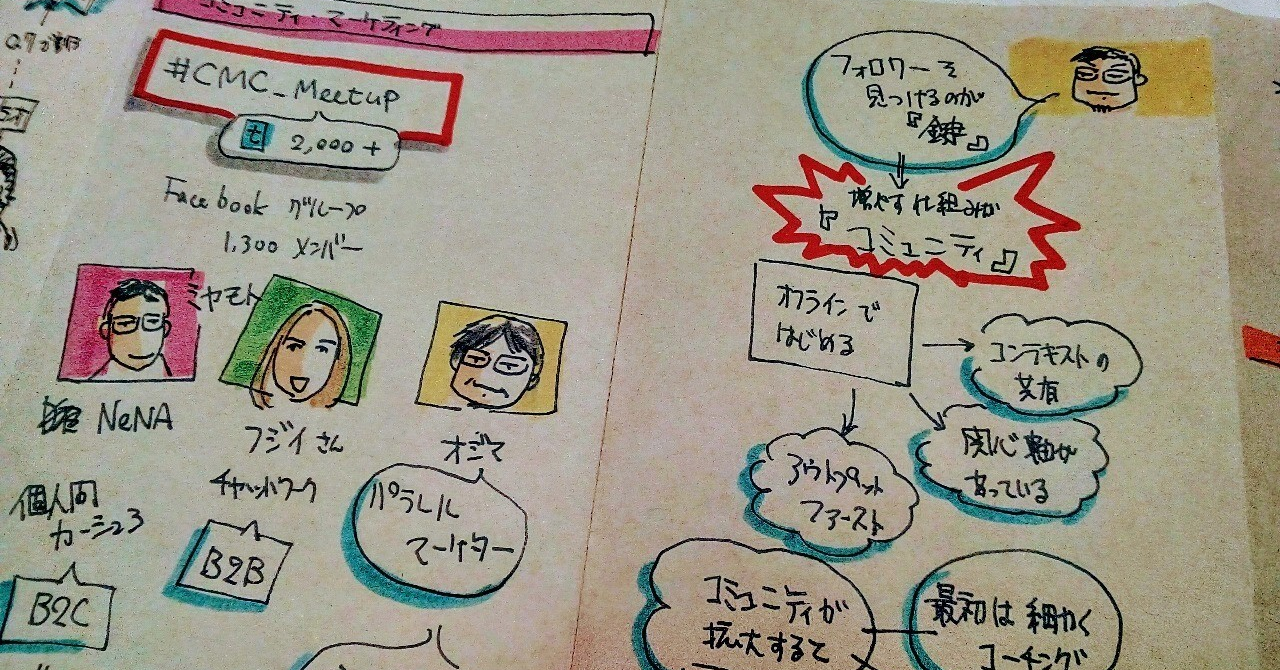 コミュニティ・マーケティング
#CMC_Meetup
t 2,000+
Facebook グループ
1,300 メンバー
ミヤモト
NeNA
フジイさん
オジマ
チャットワーク
個人間
カーシェア
B2C
B2B
パラレル
マーケター
フォロワーを
見つけるのが
『鍵』
増やす仕組みが
『コミュニティ』
オフラインで
はじめる
コンテキストの
共有
関心軸が
あっている
アウトプット
ファースト
コミュニティが
拡大すると
最初は細かく
コーチング